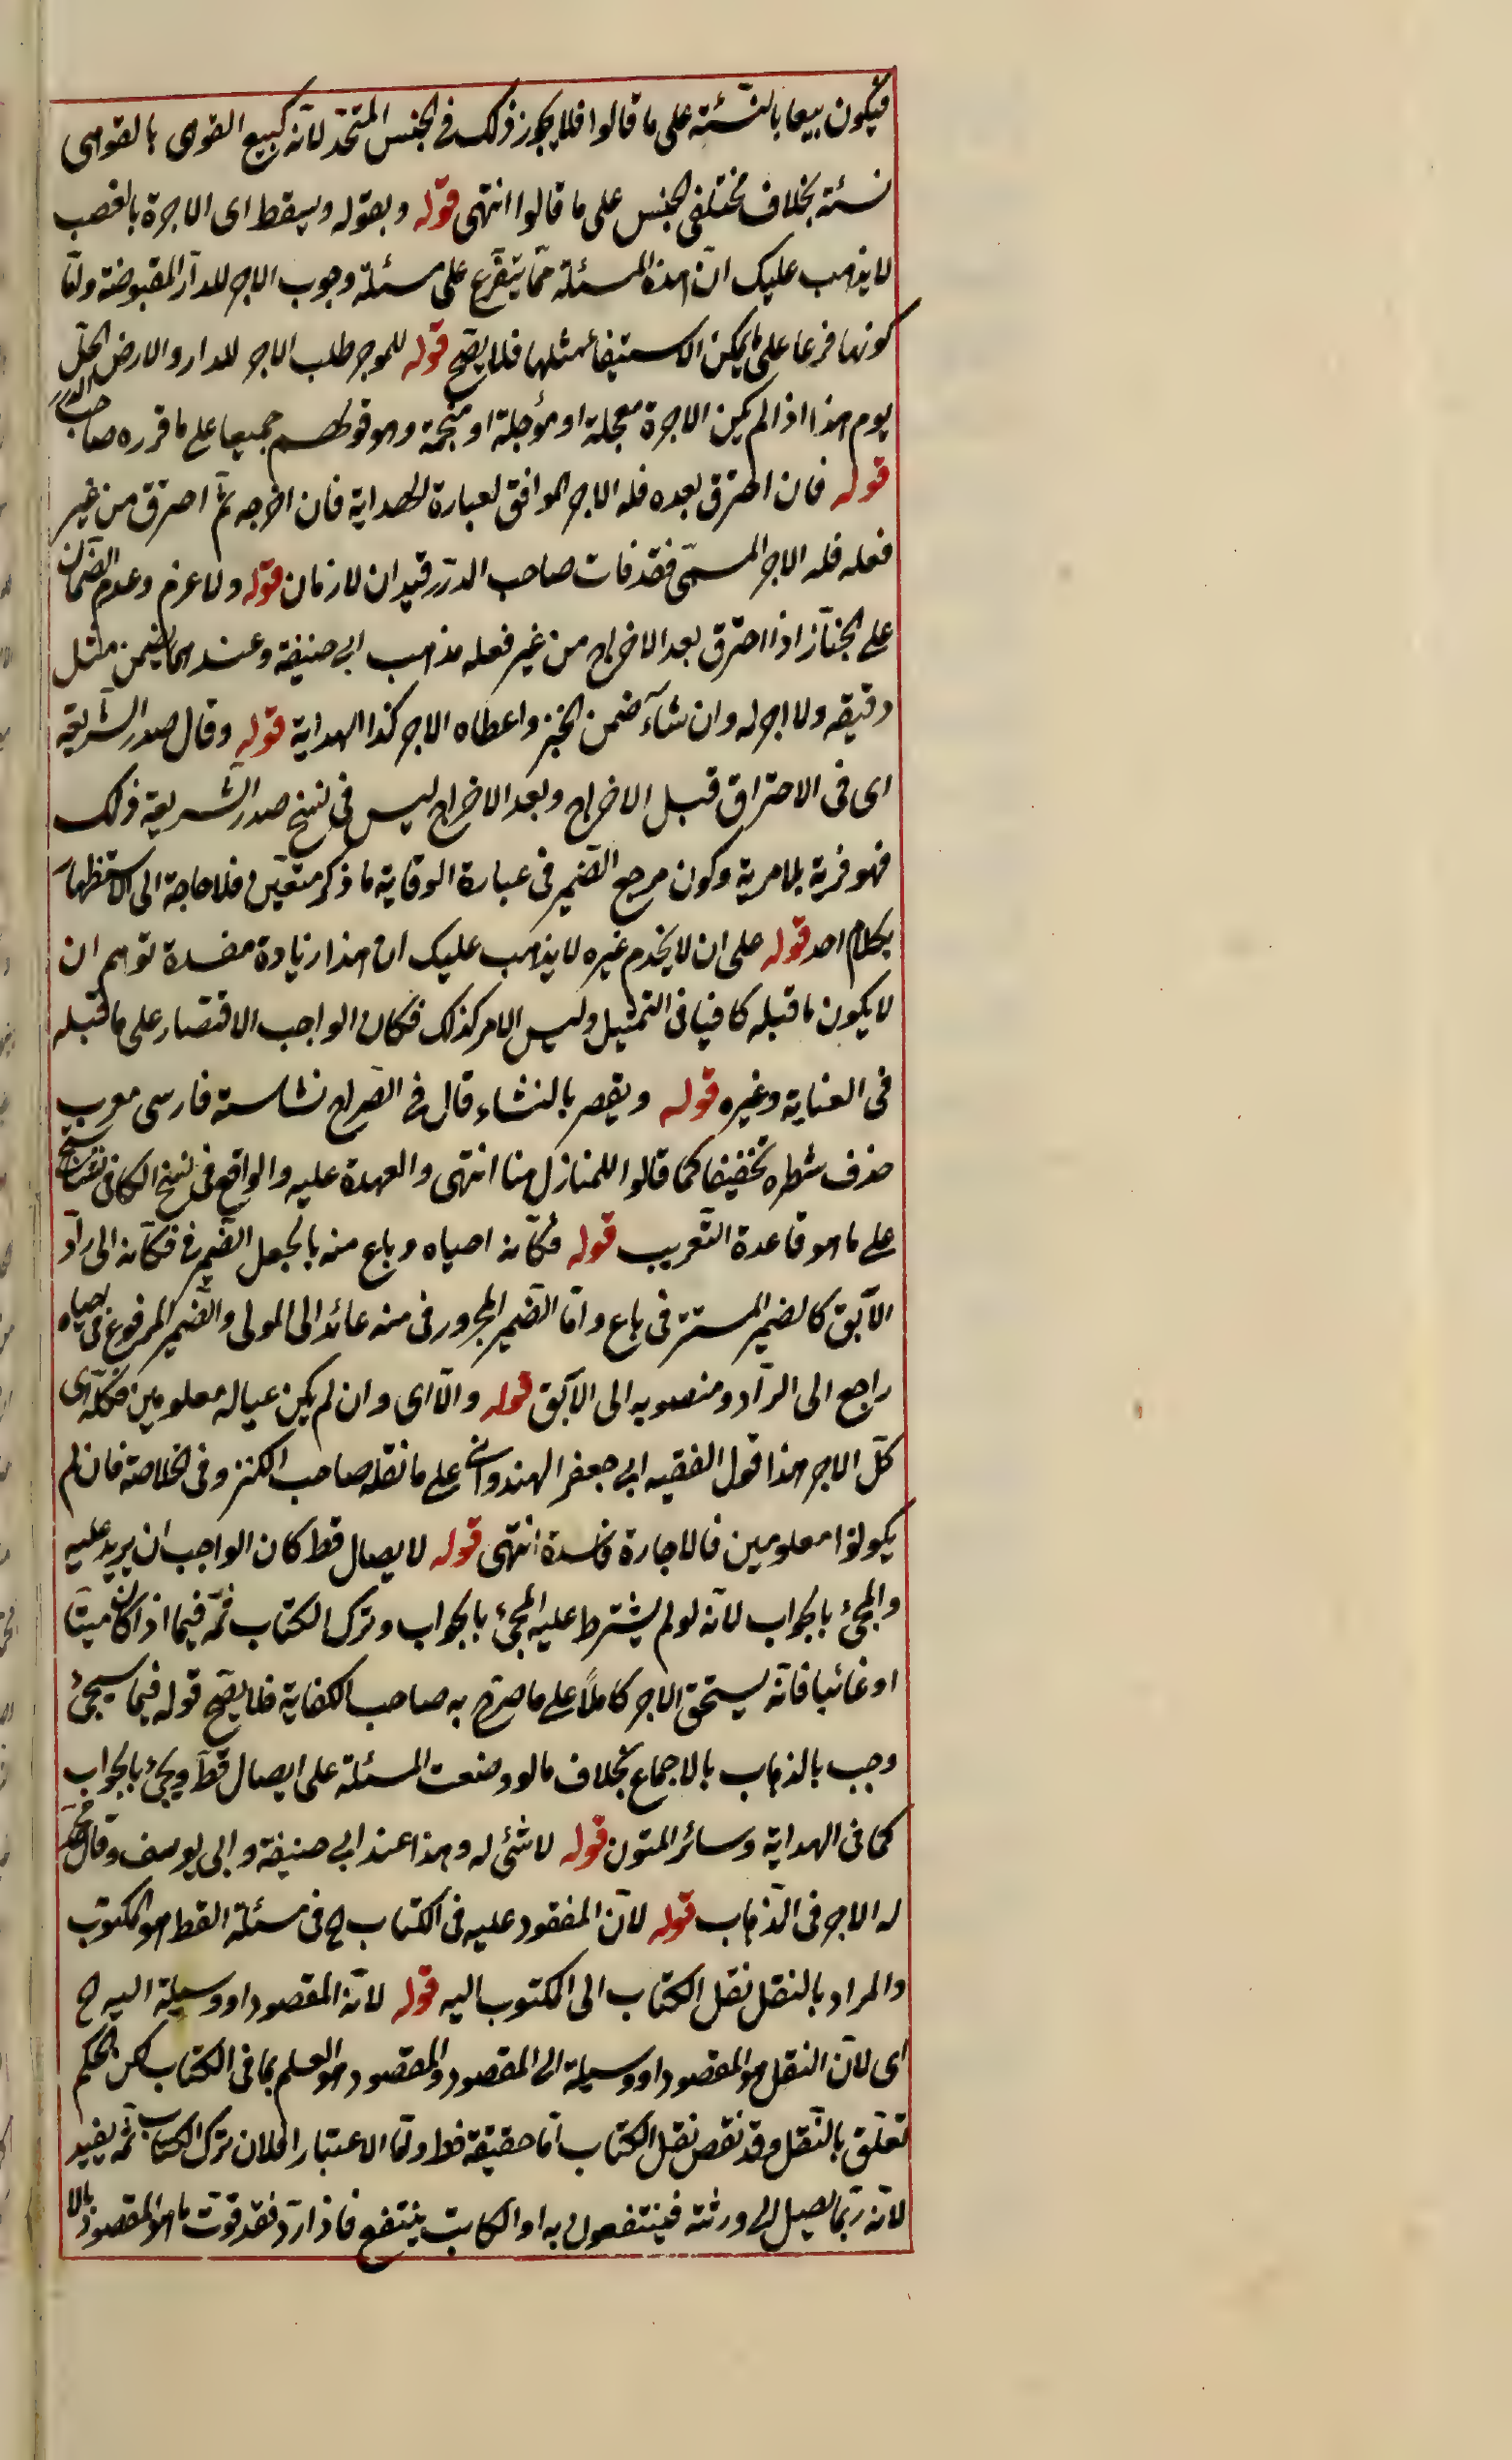 فيكون بيعا بالنسئة على ما قالوا فلا يجوز ذلك فى الجنس المتحد لانه كبيع القوهى بالقوهى
نسئة بخلاف مختلفى الجنس على ما قالوا انتهى قوله وبقوله ويسقط اى الاجرة بالغصب
لا يذهب عليك انّ هذه المسئلة ممّا يتفرّع على مسئلة وجوب الاجر للدار المقبوضة وامّا
كونها فرعا على ما يمكن الاستيفا بمثلها فلا يصح قوله للموجر طلب الاجر للدار والارض لكل
يوم هذا اذا لم يكن الاجرة معجلة او مؤجلة او منجمة وهو قولهم جميعا على ما قرره صاحب الدرر
قوله فان احترق بعده فله الاجر الموافق لعبارة الهداية فان اخرجه ثم احترق من غير
فعله فله الاجر المسمّى فقد فات صاحب الدرر قيد ان لازمان قوله ولا غرم وعدم الضمان
على الخبّاز اذا احترق بعد الاخراج من غير فعله مذهب ابى حنيفة وعندهما يضمن مثل
دقيقه ولا اجر له وان شآء ضمن الخبز واعطاه الاجر كذا الهداية قوله وقال صدر الشريعة
اى فى الاحتراق قبل الاخراج وبعد الاخراج ليس فى نسخ صدر الشريعة ذلك
فهو فرية بلا مرية وكون مرجع الضمير فى عبارة الوقاية ما ذكر متعين فلا حاجة الى الاستظهار
بكلام احد قوله على ان لا يخدم غيره لا يذهب عليك ان هذا زيادة مفسدة توهم ان
لا يكون ما قبله كافيا فى التمثيل وليس الامر كذلك فكان الواجب الاقتصار على ما قبله
فى العناية وغيره قوله ويقصر بالنشاء قال فى الصراح نشاسته فارسى معرب
حذف شطره تخفيفا كما قالوا للمنازل منا انتهى والعهدة عليه والواقع فى نسخ الكافى نشاستج
على ما هو قاعدة التعريب قوله فكأنه احياه وباع منه بالجعل الضمير فى فكأنه الى رادّ
الآبق كالضمير المستتر فى باع وامّا الضمير المجرور فى منه عائد الى المولى والضمير المرفوع فى احياه
راجع الى الرآد ومنصوبه الى الآبق قوله والّا اى وان لم يكن عياله معلومين فكله اى
كلّ الاجر هذا قول الفقيه ابى جعفر الهندوانى على ما نقله صاحب الكنز وفى الخلاصة فان لم
يكونوا معلومين فالاجارة فاسدة انتهى قوله لايصال قط كان الواجب ان يزيد عليه
والمجئ بالجواب لانه لو لم يشترط عليه المجئ بالجواب وترك الكتاب ثمّه فيما اذا كان ميتا
او غائبا فانّه يستحق الاجر كاملًا على ما صرّح به صاحب الكفاية فلا يصح قوله فيما سيجئ
وجب بالذهاب بالاجماع بخلاف ما لو وضعت المسئلة على ايصال قط ويجئ بالجواب
كما فى الهداية وسائر المتون قوله لا شئ له وهذا عند ابى حنيفة وابى يوسف وقال محمد
له الاجر فى الذهاب قوله لانّ المعقود عليه فى الكتاب ح فى مسئلة القط هو المكتوب
والمراد بالنقل نقل الكتاب الى المكتوب اليه قوله لانّه المقصود او وسيلة اليه ح
اى لانّ النقل هو المقصود او وسيلة الى المقصود والمقصود هو العلم بما فى الكتاب لكن الحكم
تعلّق بالنقل وقد نقض نقل الكتاب امّا حقيقة فظ وامّا الاعتبار افلان ترك الكتاب ثمّه يفيد
لانه ربّما يصل الى ورثته فينتفعون به او الكاتب ينتفع فاذا ردّ فقد فوّت ما هو المقصود بالا